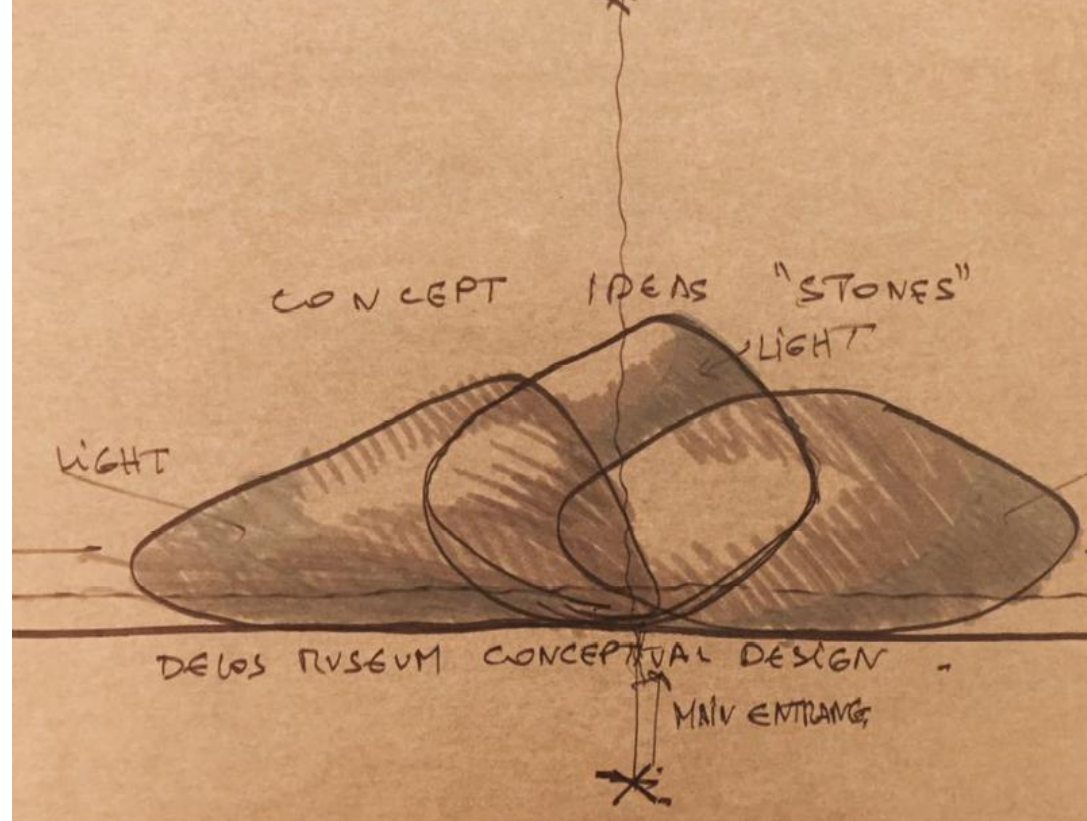 CONCEPT IDEAS "STONES"
LIGHT
LIGHT
DELOS MUSEUM CONCEPTUAL DESIGN -
MAIN ENTRANCE